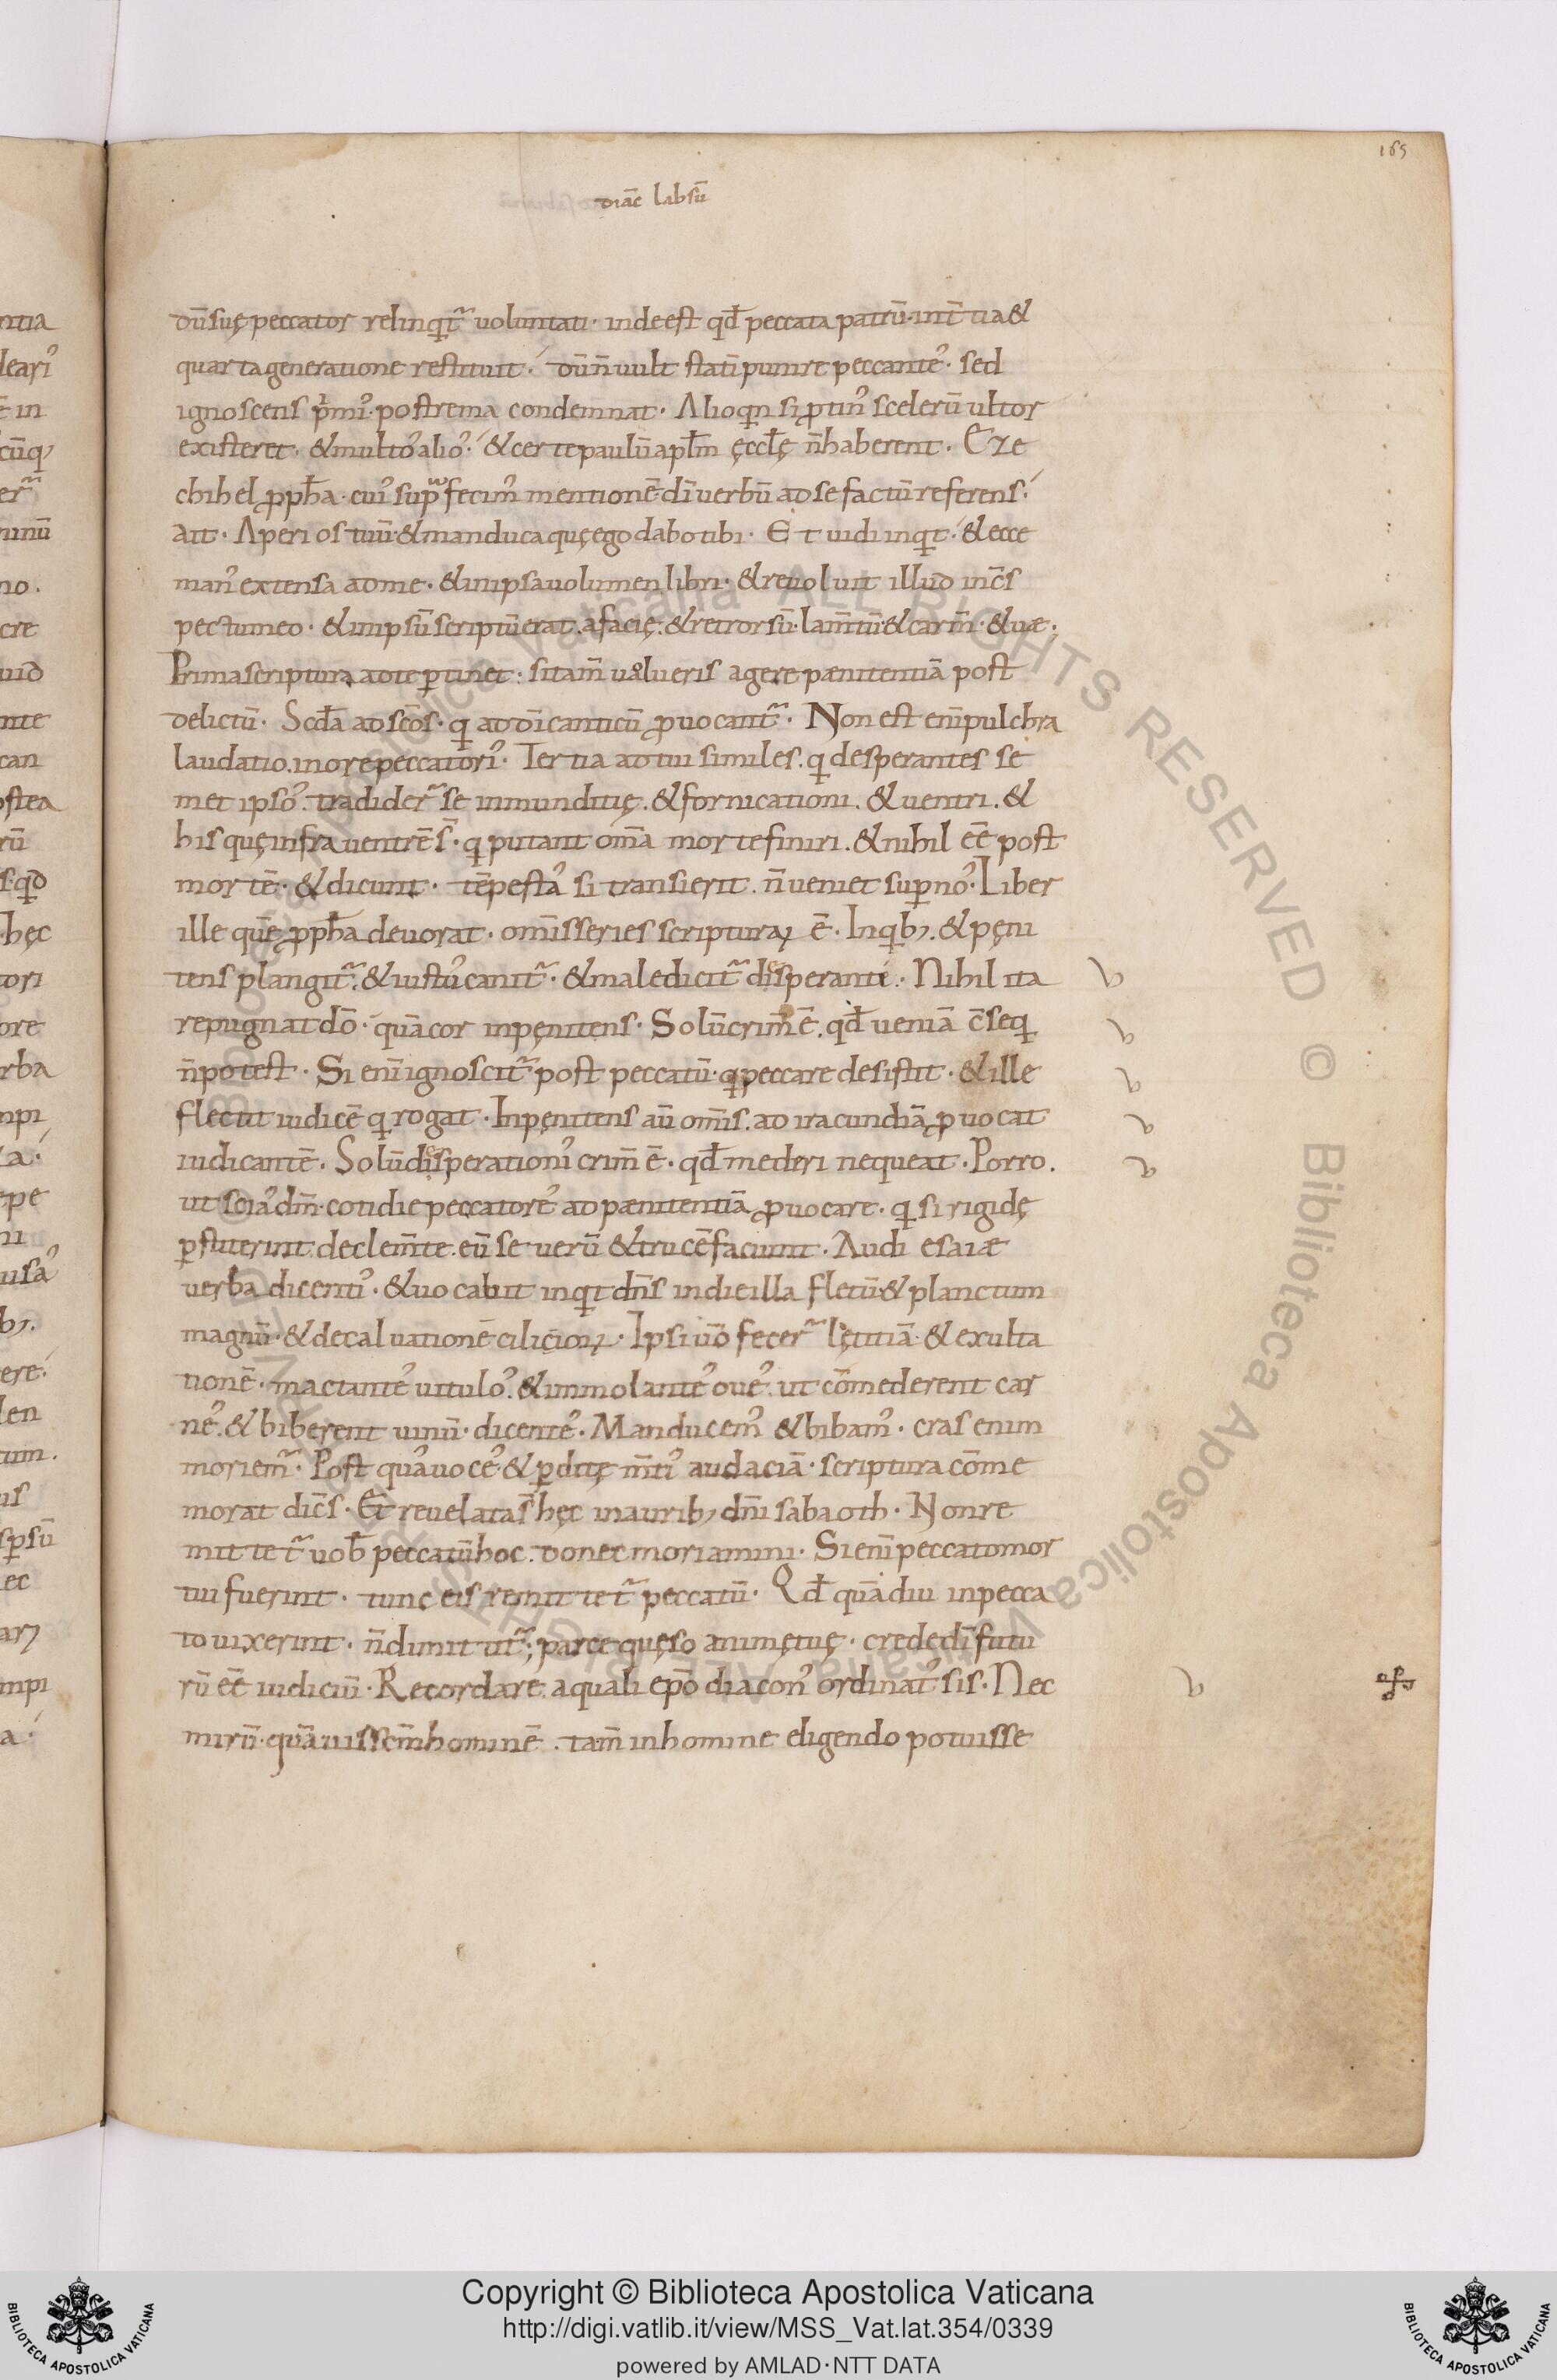 165
diac̄ labsū
dū suę peccator relinqt̃ voluntati· inde est qđ peccata patrū· in t̄tia &
quarta generatione restituit· dū n̄ vult statī punire peccante᾽· sed
ignoscens p̍mi᾽· postrema condemnat· Alioqn si ꝓtin᾽ scelerū ultor
existeret· & multo᾽ alio᾽· & certe paulū apl̄m ęccl̄ę n̄ haberent· Eze
chihel ꝓph̄a· cui᾽ sup̃ fecim᾽ mentionē· dī verbū ad se factū referens·
ait· Aperi os tuū· & manduca quę ego dabo tibi· Et vidi inqt· & ecce
man᾽ extensa ad me· & in ipsa volumen libri· & revolvit illud in c̄s
pectu meo· & in ipsū scriptū erat· a facię· & retrorsū· lam̄tū & carm̄· & uæ·
Prima scriptura ad te ꝑtinet· si tam̄ volueris agere pænitentiā post
delictū· Scđa ad sc̄os· q ad dī canticū ꝓvocant̃· Non est eni̅ pulchra
laudatio· in ore peccatori᾽· Tertia ad tui similes· q desperantes se
met ipso᾽· tradider̃ se inmunditię· & fornicationi· & ventri· &
his quę infra ventrē s̄· q putant om̄a morte finiri· & nihil eē post
mortē· & dicunt· tēpesta᾽ si transierit· n̄ veniet suꝑ no᾽· Liber
ille quē ꝓph̄a devorat· om̄is series scripturaꝝ ē· In qb;· & pęni
tens plangit̃· & iustu᾽ canit̃· & maledicit̃ desperanti· Nihil ita
repugnat dō· quā cor inpęnitens· Solū crim̄ ē· qđ veniā c̄seq
n̄ potest· Si eni̅ ignoscit̃ post peccatū· q peccare desistit· & ille
flectit iudicē q rogat· Inpęnitens aū om̄is· ad iracundiā ꝓvocat
iudicantē· Solū desperationi᾽ crim̄ ē· qđ mederi nequeat· Porro·
ut scia᾽ dm̄· cotidie peccatore᾽ ad pænitentiā ꝓvocare· q si rigidę
ꝑstiterint· de clem̄te· eū severū & trucē faciunt· Audi esaiæ
verba dicenti᾽· & vocabit inqt dn̄s in die illa fletū· & planctum
magnū· & decalvationē· ciliciorꝝ· Ipsi v̄o fecer̃ lętitiā· & exulta
tionē· mactante᾽ vitulo᾽· & immolante᾽ ove᾽· ut cōmederent car
ne᾽· & biberent vinū· dicente᾽· Manducem᾽ & bibam᾽· cras enim
moriem̃· Post qua᾽ voce᾽· & ꝑditę m̄ti᾽ audaciā· scriptura cōme
morat dic̄s· Et revelata s̄ hęc in aurib; dn̄i sabaoth· Non re
mittet̃ vob̄ peccatū hoc· donec moriamini· Si eni̅ peccato mor
tui fuerint· tunc eis remittet̃ peccatū· Qđ quādiu in pecca
to vixerint· n̄ dimittit̃; parce quęso animę tuę· crede dī futu
rū eē iudiciū· Recordare· a quali ep̄o diacon᾽ ordinat᾽ sis· Nec
mirū· quāvis sc̄m hominē· tam̄ in homine eligendo potuisse
Copyright © Biblioteca Apostolica Vaticana
http://digi.vatlib.it/view/MSS_Vat.lat.354/0339
powered by AMLAD·NTT DATA